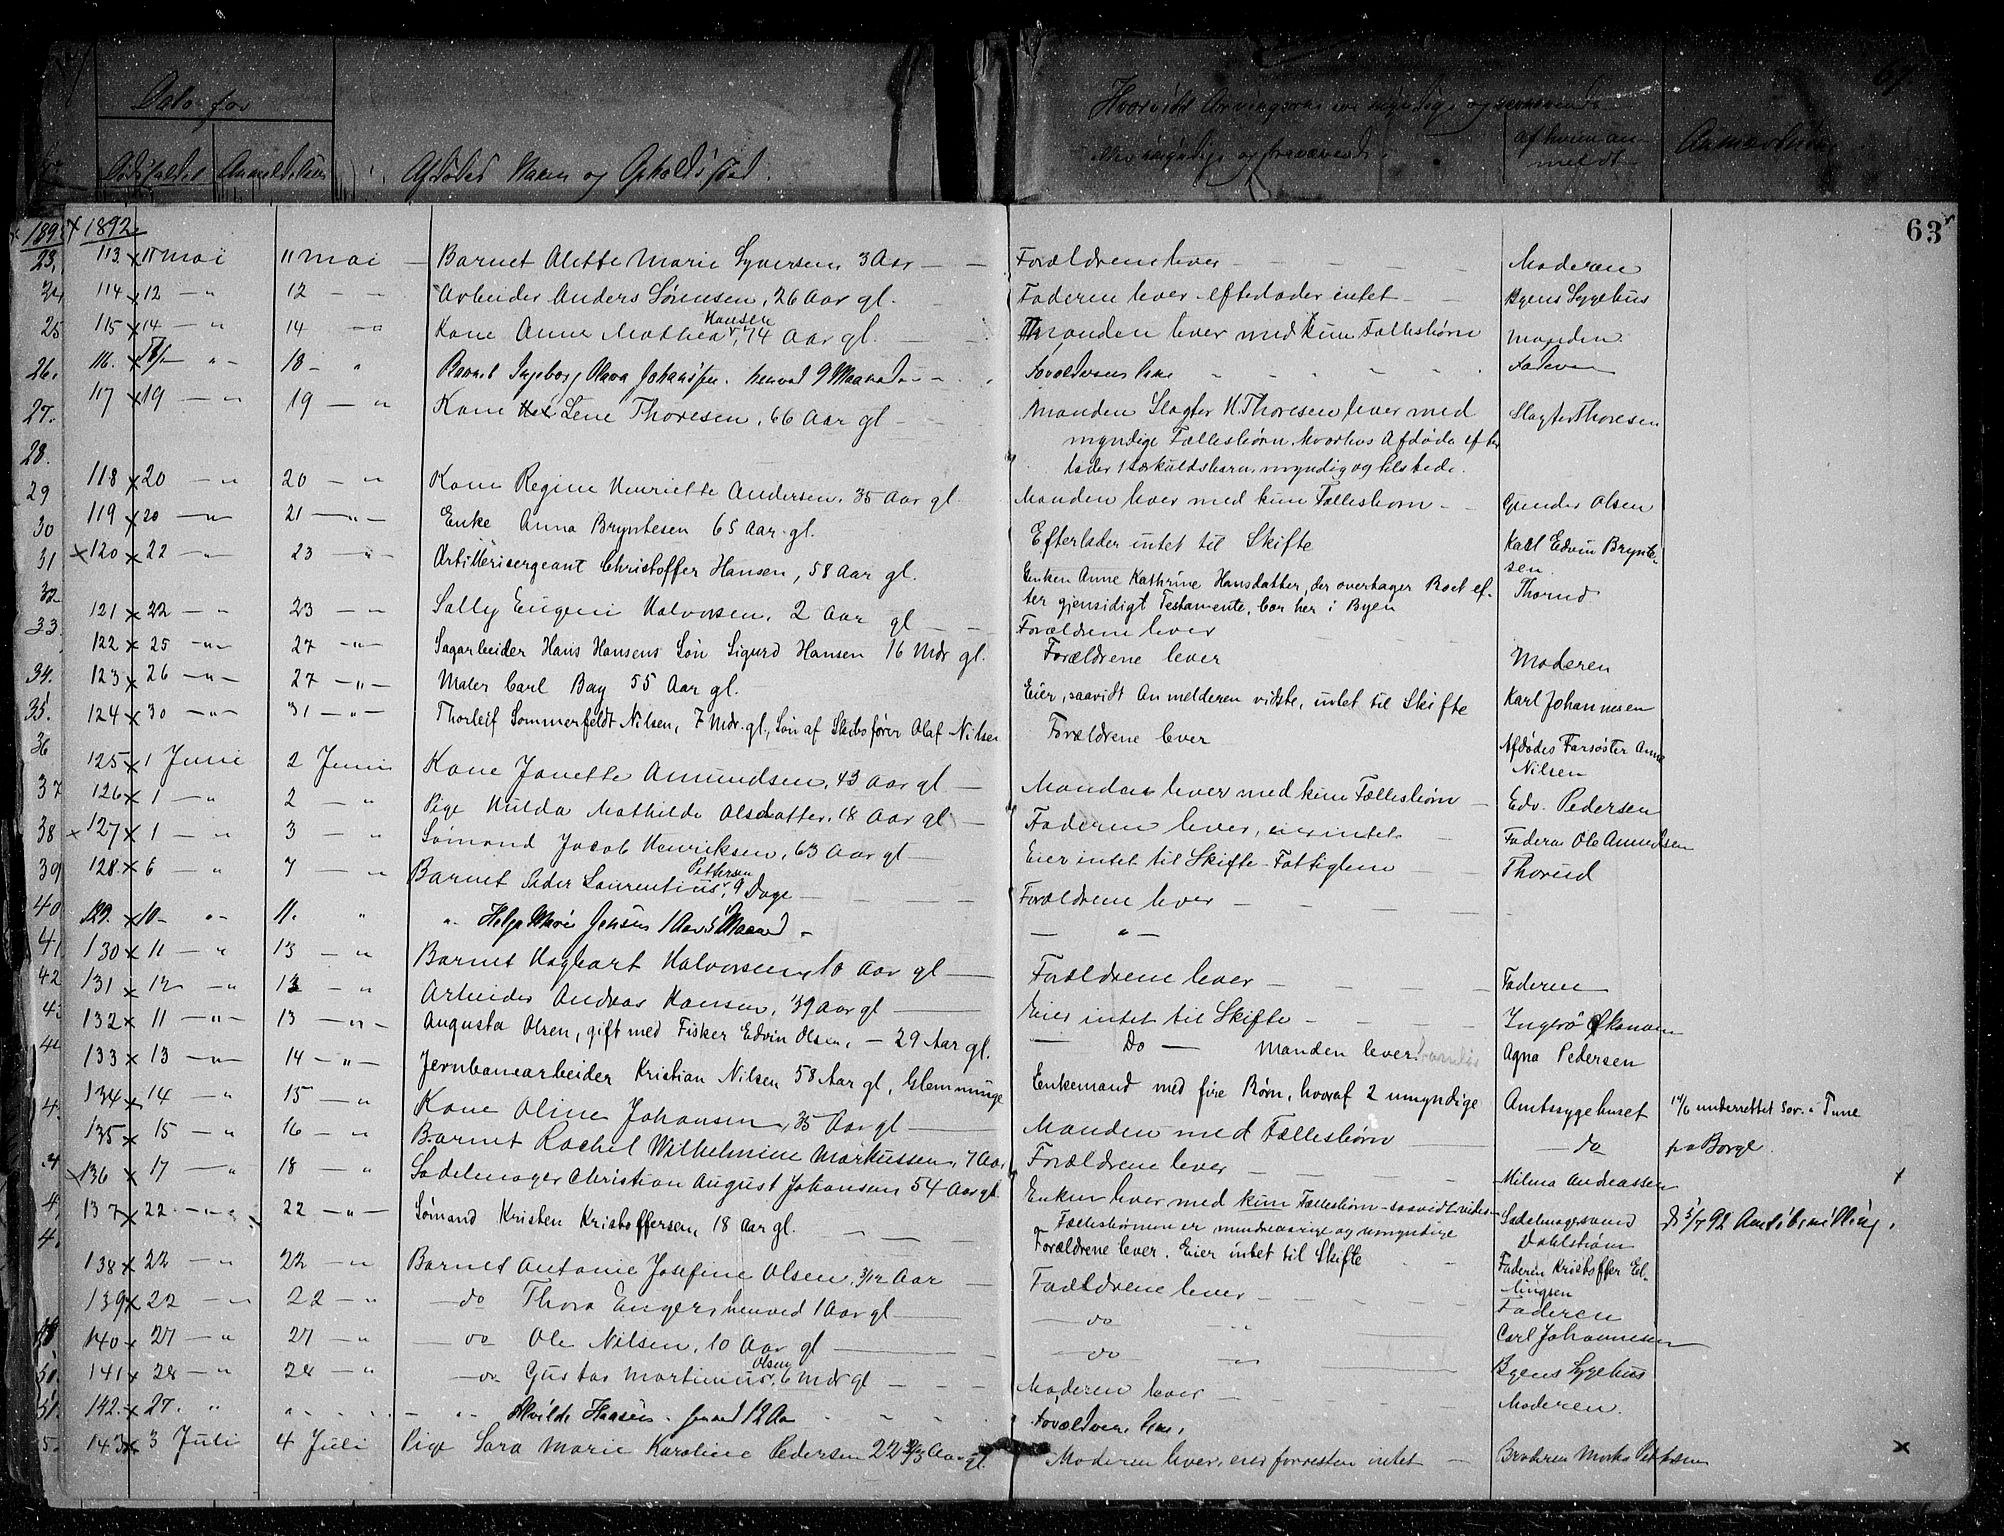 Dato for
Dødsfaldet Anmeldelsen
Afdødes Navn og Opholdssted.
Hvorvidt Arvingerne ere myndige og nærværende
eller umyndige og fraværende.
af hvem anmeldt
Anmærkning
63
1892
113. 11 mai 11 mai Barnet Alette Marie Syversen, 3 Aar Forældrene lever Moderen
114 12 — " 12 — " Arbeider Anders Sørensen, 26 Aar gl. Faderen lever efterlader intet Byens Sygehus
115 14 — " 14 — " Kone Anne Mathea Hansen, 74 Aar gl. Manden lever med kun Fællesbørn Manden
116. 18 — " Barnet Ingeborg Olava Johansen. henved 9 Maaneder Forældrene lever Faderen
117 19 — " 19 — " Kone Lene Thoresen, 66 Aar gl Manden Slagter H. Thoresen lever med Slagter Thoresen
myndige Fællesbørn. hvorhos Afdøde efter
lader 1 Særkuldsbarn, myndig og tilstede.
118 20 — " 20 — " Kone Regine Henriette Andersen, 35 Aar gl. Manden lever med kun Fællesbørn Gunder Olsen
119 20 — " 21 — " Enke Anna Bryntesen 65 Aar gl. Efterlader intet til Skifte Karl Edvin Bryntesen
120 22 — " 23 — " Artillerisergeant Christoffer Hansen, 58 Aar gl. Enken Anne Kathrine Hansdatter, der overtager Boet ef-
ter gjensidigt Testamente, bor her i Byen Thorud
121 22 — " 23 — " Sally Eugeni Halvorsen, 2 Aar gl Forældrene lever
122 25 — " 27 — " Sagarbeider Hans Hansens Søn Sigurd Hansen 16 Mdr gl. Forældrene lever Moderen
123 26 — " 27 — " Maler Carl Bay 55 Aar gl. Eier, saavidt Anmelderen vidste, intet til Skifte Karl Johannesen
124 30 — " 31 — " Thorleif Sommerfeldt Nilsen, 7 Mdr. gl., Søn af Skibsfører Olaf Nilsen Forældrene lever Afdødes Farsøster Anna Nilsen
125 1 Juni 2 Juni Kone Janette Amundsen, 43 Aar gl Manden lever med kun Fællesbørn Edv. Pedersen
126 1 — " 2 — " Pige Hulda Mathilde Olsdatter, 18 Aar gl Faderen lever, eier intet Faderen Ole Amundsen
127 1 — " 3 — " Sømand Jacob Henriksen, 63 Aar gl Eier intet til Skifte - Fattiglem Thorud
128. 6 " 7 " Barnet Peder Laurentius Pettersen, 9 Dage Forældrene lever
129. 10 " 11. " " Helga Marie Jensen 1 Aar 5 Maaned — " —
130 11 — " 13 — " Barnet Hagbart Halvorsen, 10 Aar gl Forældrene lever Faderen
131 12 — " 13 — " Arbeider Andreas Hansen, 39 Aar gl Eier intet til Skifte Ingerø
132 11 — " 13 — " Augusta Olsen, gift med Fisker Edvin Olsen, — 29 Aar gl. — Do — Manden lever. Agna Pedersen
133 13 — " 14 — " Jernbanearbeider Kristian Nilsen 58 Aar gl, Glemminge Enkemand med fire Børn, hvoraf 2 umyndige Amtssygehuset underrettet Sor. i Tune
134 14 — " 15 — " Kone Oline Johansen, 35 Aar gl Manden med Fællesbørn do paa Borge
135 15 — " 16 — " Barnet Rachel Wilhelmine Markussen, 7 Aar Forældrene lever Milma Andreassen
136 17 — " 18 — " Sadelmager Christian August Johansen 54 Aar gl Enken lever med kun Fællesbørn - saavidt vides Sadelmagersvend Dahlstrøm 5/7 92 Amtsbevilling.
Fællesbørnene er mindreaarige og umyndige
137 22 — " 22 — " Sømand Kristen Kristoffersen, 18 Aar gl. Forældrene lever. Eier intet til Skifte Faderen Kristoffer Ellingsen
138 22 — " 22 — " Barnet Antonie Josefine Olsen, 3/12 Aar Forældrene lever Faderen
139 22 — " 22 — " do Thora Engers, henved 1 Aar gl do " Carl Johannesen
140 27 — " 27 — " do Ole Nilsen, 10 Aar gl do " Byens Sygehus
141 28 — " 28 — " do Gustav Martinius Olsen, 6 Mdr gl Moderen lever Moderen.
142. 27. " " Alvilde Hansen. henved 12 Aar Forældrene lever
143 3 Juli 4 Juli Pige Lara Marie Karoline Pedersen 22 Aar gl. Moderen lever, eier forresten intet Broderen